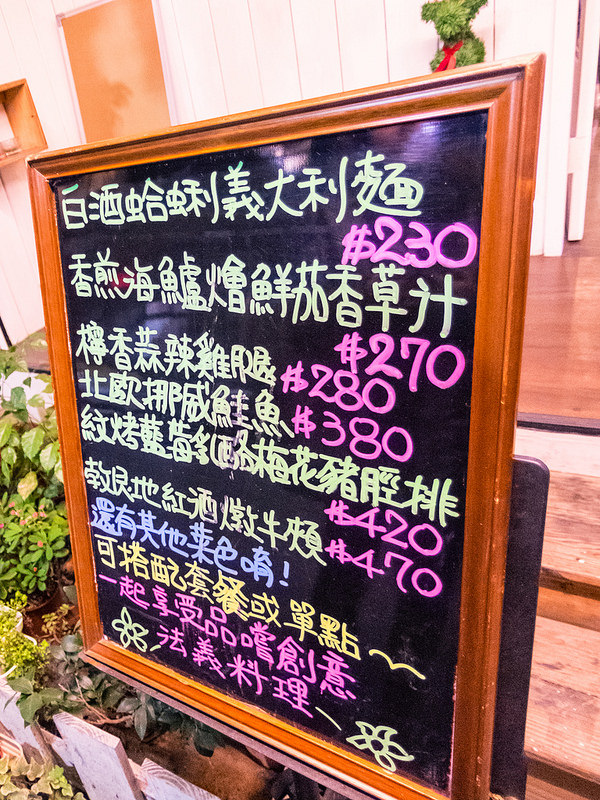 白酒蛤蜊義大利麵
$230
香煎海鱸燴鮮茄香草汁
$270
檸香蒜辣雞腿 $280
北歐挪威鮭魚 $380
紋烤藍莓乳酪梅花豬脛排
$420
教良地紅酒燉牛頰 $470
還有其他菜色唷!
可搭配套餐或單點~
一起享受品嚐創意
法義料理